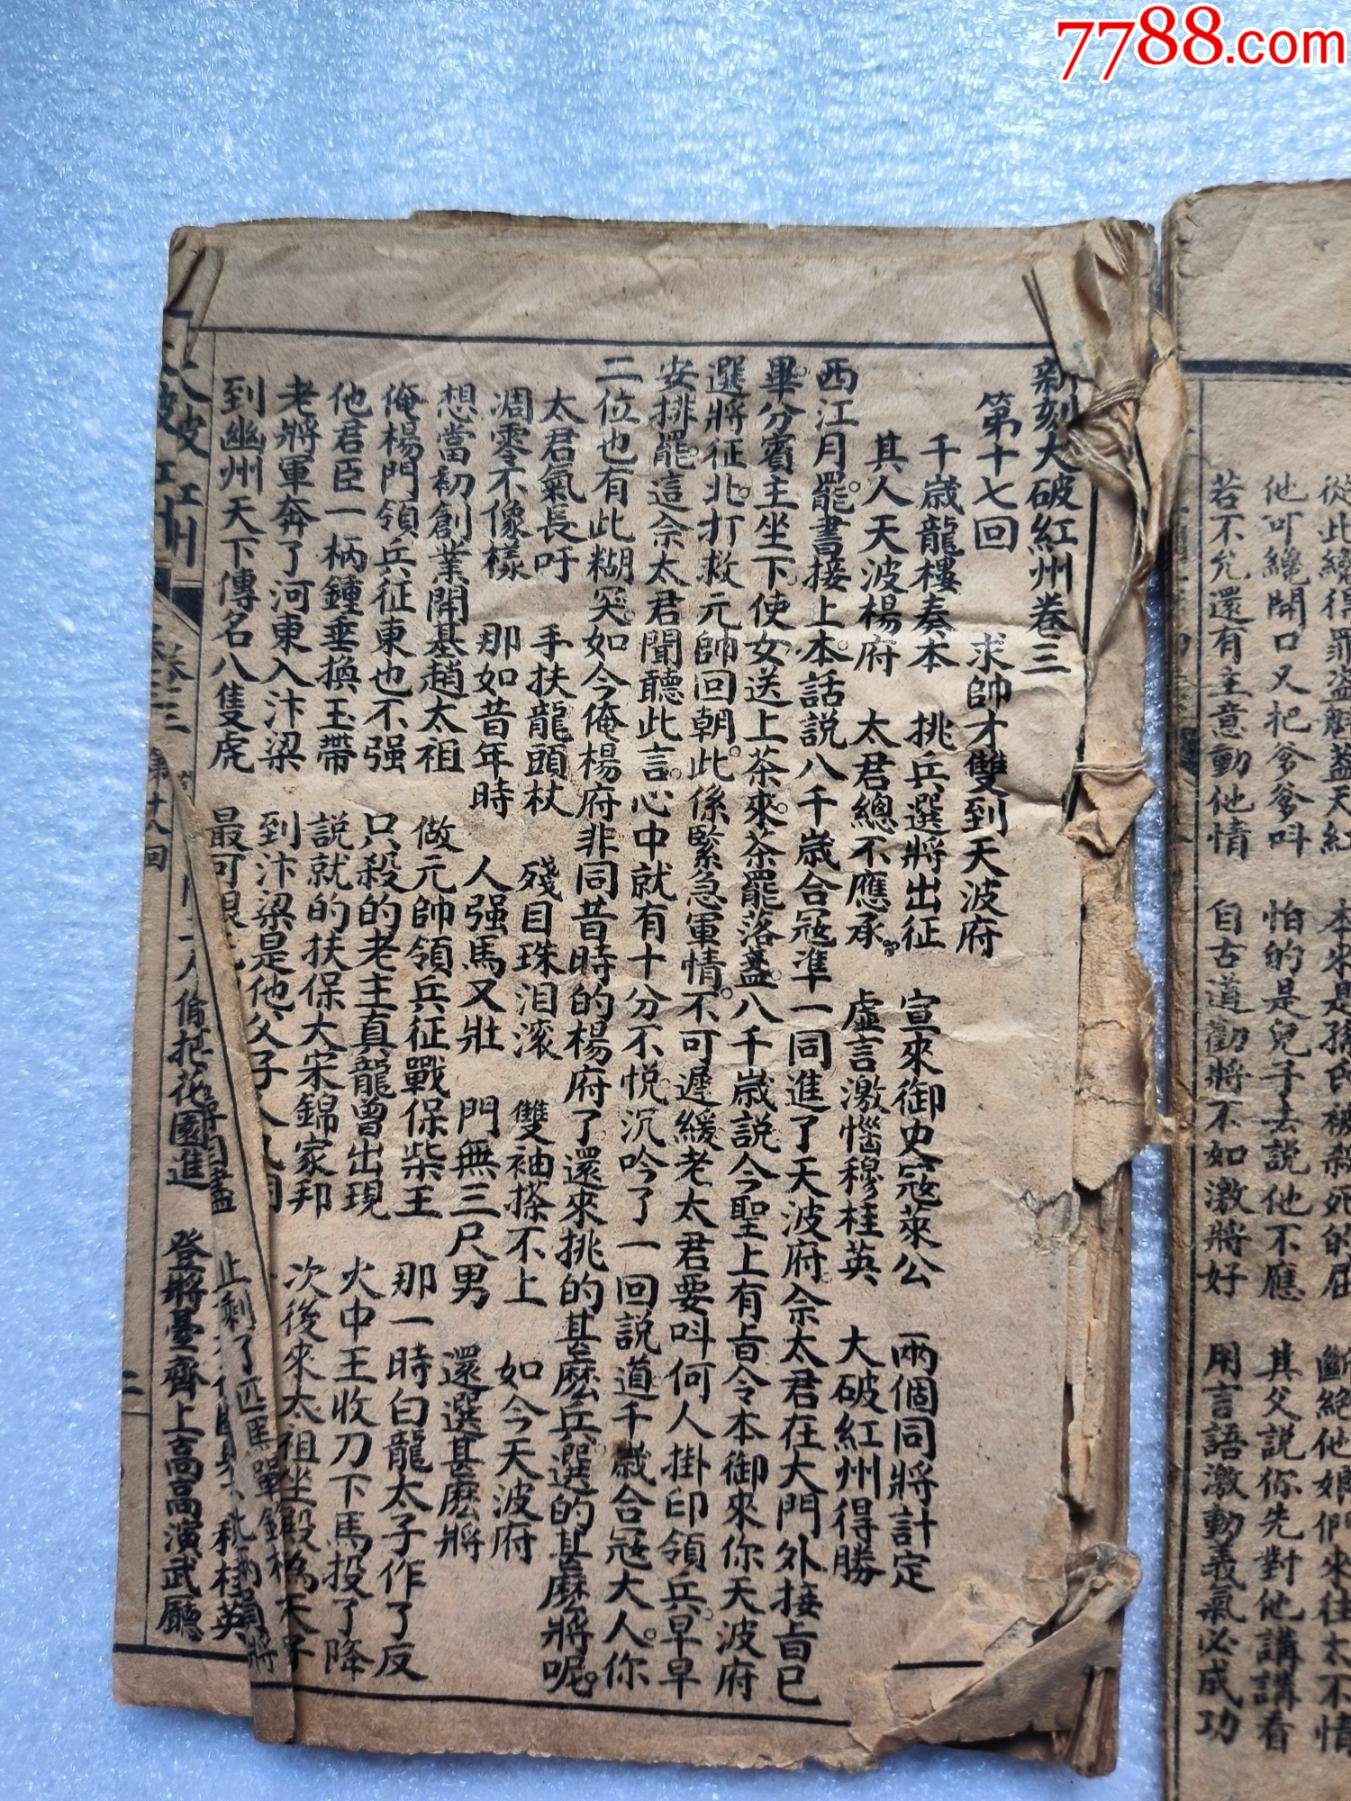 7788.com
新刻大破紅州卷三
第十七回 求帥才雙到天波府
千歲龍樓奏本 挑兵選將出征 宣來御史寇萊公 兩個同將計定
其人天波楊府 太君總不應承 虛言激惱穆桂英 大破紅州得勝
西江月罷書接上本話説八千歲合寇準一同進了天波府佘太君在大門外接旨已
畢分賓主坐下使女送上茶來茶罷落盞八千歲説今聖上有旨令本御來你天波府
選將征北打救元帥回朝此係緊急軍情不可遲緩老太君要呌何人掛印領兵早早
安排罷這佘太君聞聽此言心中就有十分不悦沉吟了一回説道千歲合寇大人你
二位也有此糊突如今俺楊府非同昔時的楊府了還來挑的甚麽兵選的甚麽將呢
太君氣長吁 手扶龍頭杖 殘目珠泪滚 雙袖搽不上 如今天波府
凋零不像樣 那如昔年時 人强馬又壯 門無三尺男 還選甚麽將
想當初創業開基趙太祖 做元帥領兵征戰保柴王 那一時白龍太子作了反
俺楊門領兵征東也不强 只殺的老主真龍曾出現 火中王收刀下馬投了降
他君臣一柄鍾垂換玉帶 説就的扶保大宋錦家邦 次後來太祖坐殿爲天子
老將軍奔了河東入汴梁 到汴梁是他父子
到幽州天下傳名八隻虎 最可恨 止剩了匹馬單鎗
大破紅州 卷三 第十八回
偷把花園進 登將臺齊上高高演武廳
二
從此纔得罪 本來是孫氏被殺死的屈 斷絕他娘們來往太不情
他吖纔開口又把爹爹呌 怕的是兒子去説他不應 其父説你先對他講講看
若不允還有主意動他情 自古道勸將不如激將好 用言語激動義氣必成功